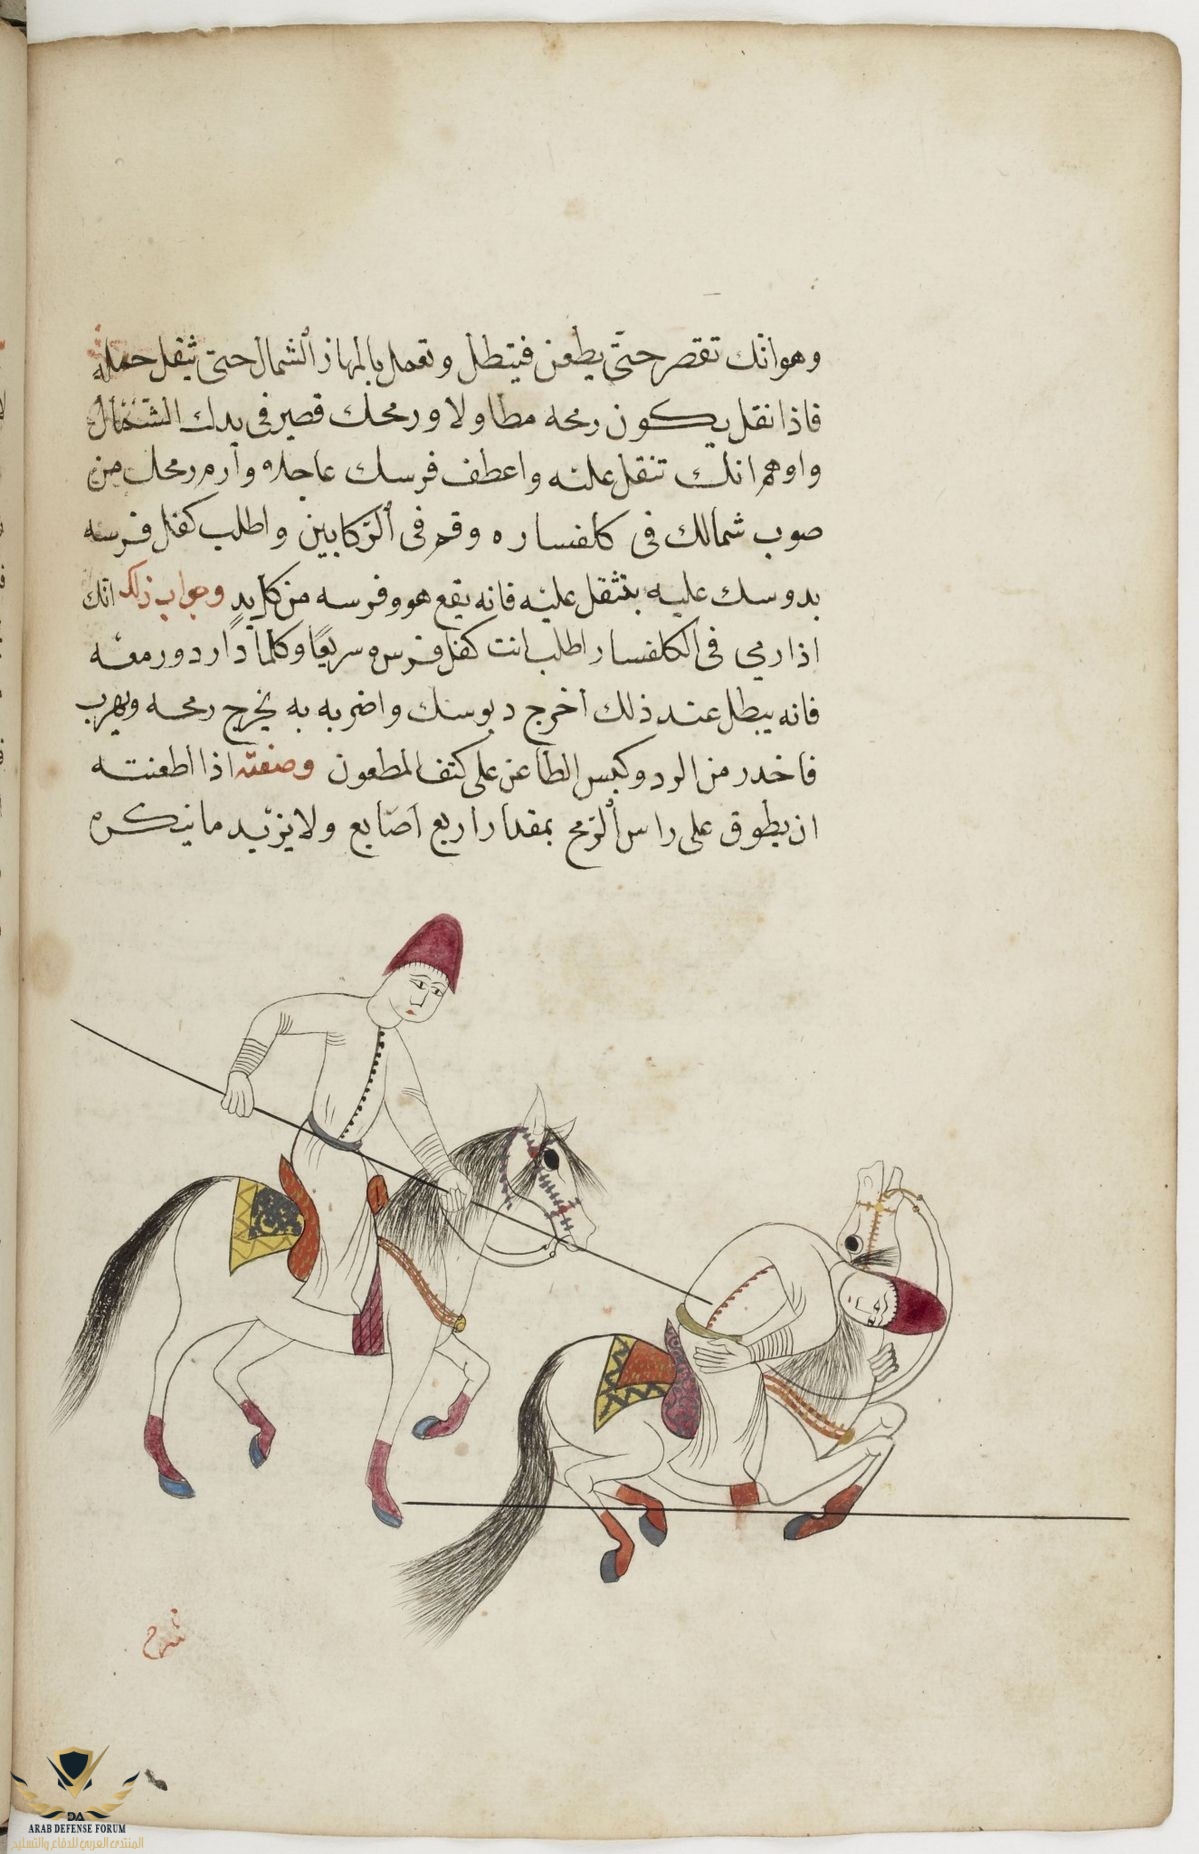 وهو أنك تقصر حتى يطعن فيتطل وتعمل بالمهاز الشمال حتى تثقل حمله
فاذا نقل يكون رمحه مطاولا ورمحك قصير فى يدك الشمال
واوهم انك تنقل عليه واعطف فرسك عاجله وآرم رمحك من
صوب شمالك فى كلفساره وقم فى الركابين واطلب كفل فرسه
بدوسك عليه عليه فانه يقع هو وفرسه من كل يدٍ وجواب ذلك انك
اذا رمي فى الكلفسار اطلب انت كفل فرسه سريعًا وكلما دار دور معه
فانه يبطل عند ذلك أخرج دبوسك واضربه به يخرج رمحه ويهرب
فاحدر من الرد وكبس الطاعن على كتف المطعون وصفته اذا اطعنته
ان يطوق على راس الرمح بمقدار اربع أصابع ولا يزيد ما
شرح
DA
ARAB DEFENSE FORUM
المنتدى العربي للدفاع والتسليح